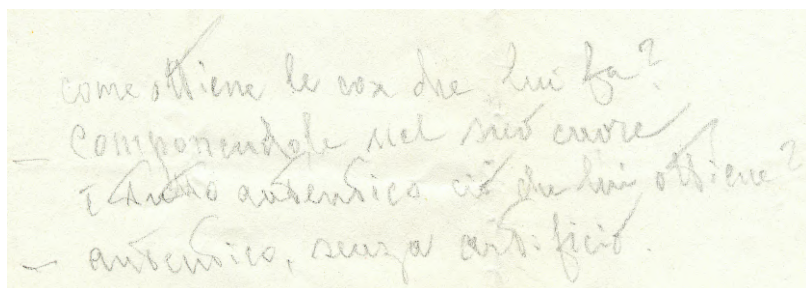 come ottiene le cose che lui fa?
– Componendole nel suo cuore
È tutto autentico ciò che lui ottiene?
– autentico, senza artificio.